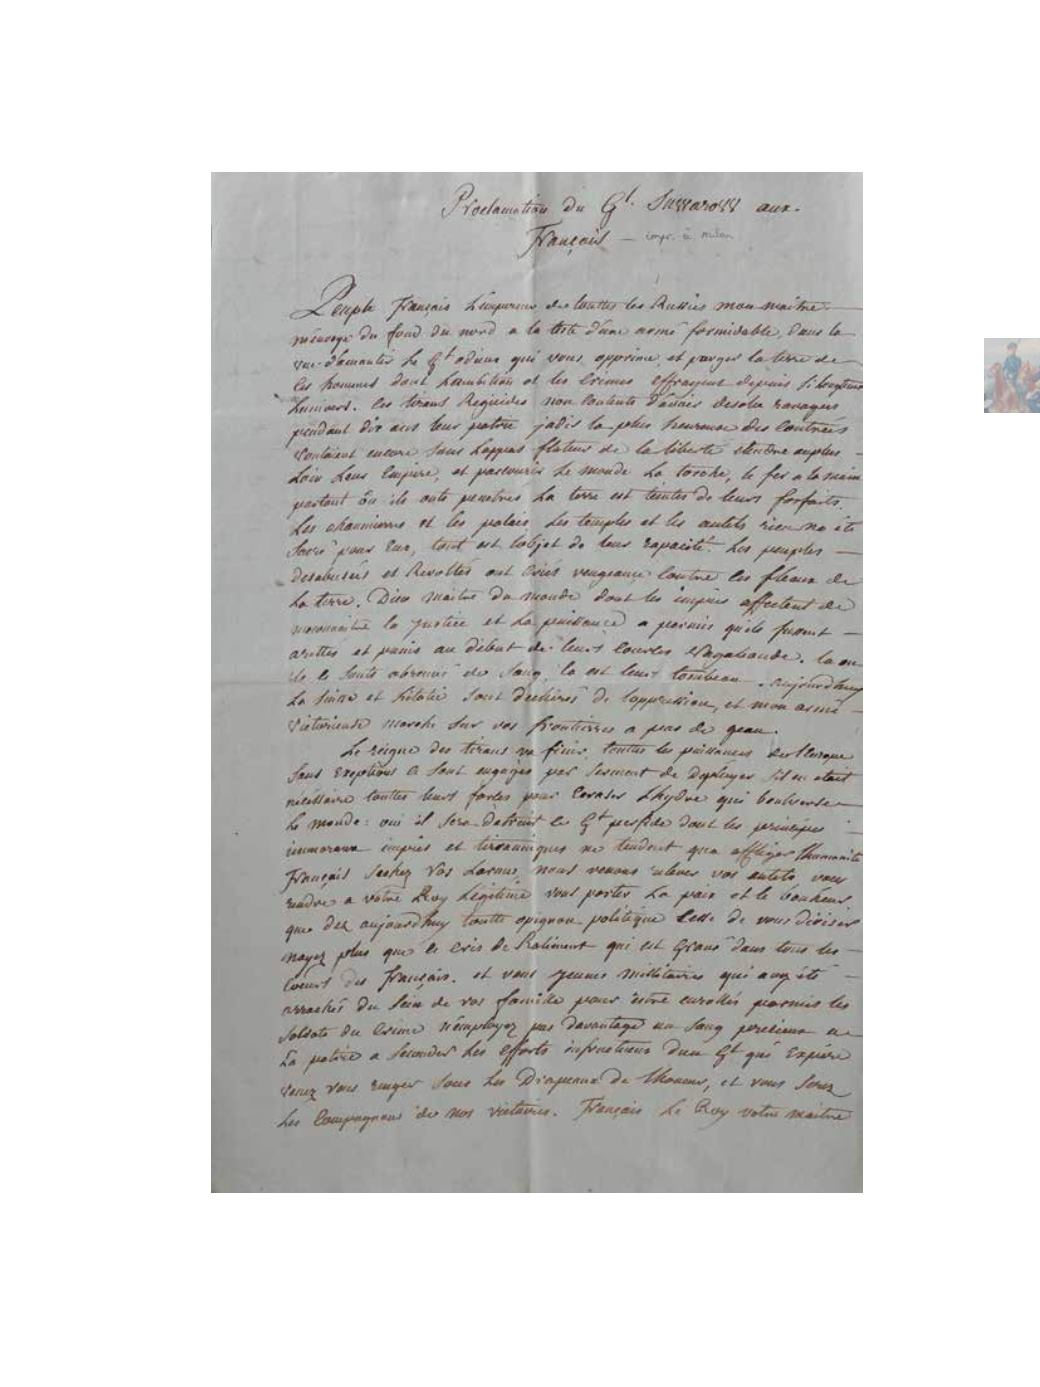 Proclamation du Gl. Suwarow aux
Français — impr. à Milan
Peuple français L'empereur de touttes les Russies mon maitre
m'envoye du fond du nord a la teste d'une armé formidable, dans la
vue d'aneantir le Gt odieux qui vous opprime, et purger la terre de
ces hommes dont L'ambition et les Crimes effrayent depuis si longtems
Lunivers. Ces tirans Regicides non Contents d'avoir desolé ravagers
pendant dix ans leur patrie jadis la plus heureuse des Contrées
vouloient encore sous Lappas flateur de la liberté etendre au plus
Loin Leur Empire, et parcourir Le monde La torche, le fer a la main
partout ou ils onts penetres La terre est teintes de leurs forfaits.
Les chaumieres et les palais, Les temples et les autels rien na été
Sacré pour Eux, tout est L'objet de leur rapacité. Les peuples
desabusés et Revoltés ont criés vengeance Contre ces fleaux de
La terre. Dieu maitre du monde dont les impies affectent de
meconnaitre la Justice et La puissance a permis qu'ils fussent
arettés et punis au début de leurs Courses vagabonde. la ou
ils se sonts abreuvé de Sang, la est leurs tombeau. aujourd'huy
La Suisse et L'italie sont delivrés de L'oppression, et mon armé
victorieuse marche sur vos frontieres a pas de gean.
Le reigne des tirans va finir, touttes les puissances de L'Europe
Sans exceptions se sont engagés par Serment de Deployer s'il en etait
nécéssaire touttes leurs forces pour Ecraser L'hydre qui boulverse
Le monde: oui il sera détruit ce Gt perfide dont les principes
immoraux impies et tirannniques ne tendent qua affliger L'humanité
Français Sechez vos Larmes, nous venons relever vos autels vous
rendre a votre Roy Légitime vous porter La paix et le bonheur
que dez aujourd'huy toutte opignon politique Cesse de vous diviser
nayez plus que le Cris de Raliement qui est Gravé dans tous les
Coeurs des français. et vous jeunes millitaires qui avez été
arrachés du Sein de vos famille pour estre enrollés parmis les
Soldats du Crime n'employez pas davantage un Sang precieux a
La patrie a Seconder Les Efforts infructueux d'un Gt qui Expire
venez vous ranger sous Les Drapeaux de L'honneur, et vous serez
Les Compagnons de nos victoires. Français Le Roy votre maitre